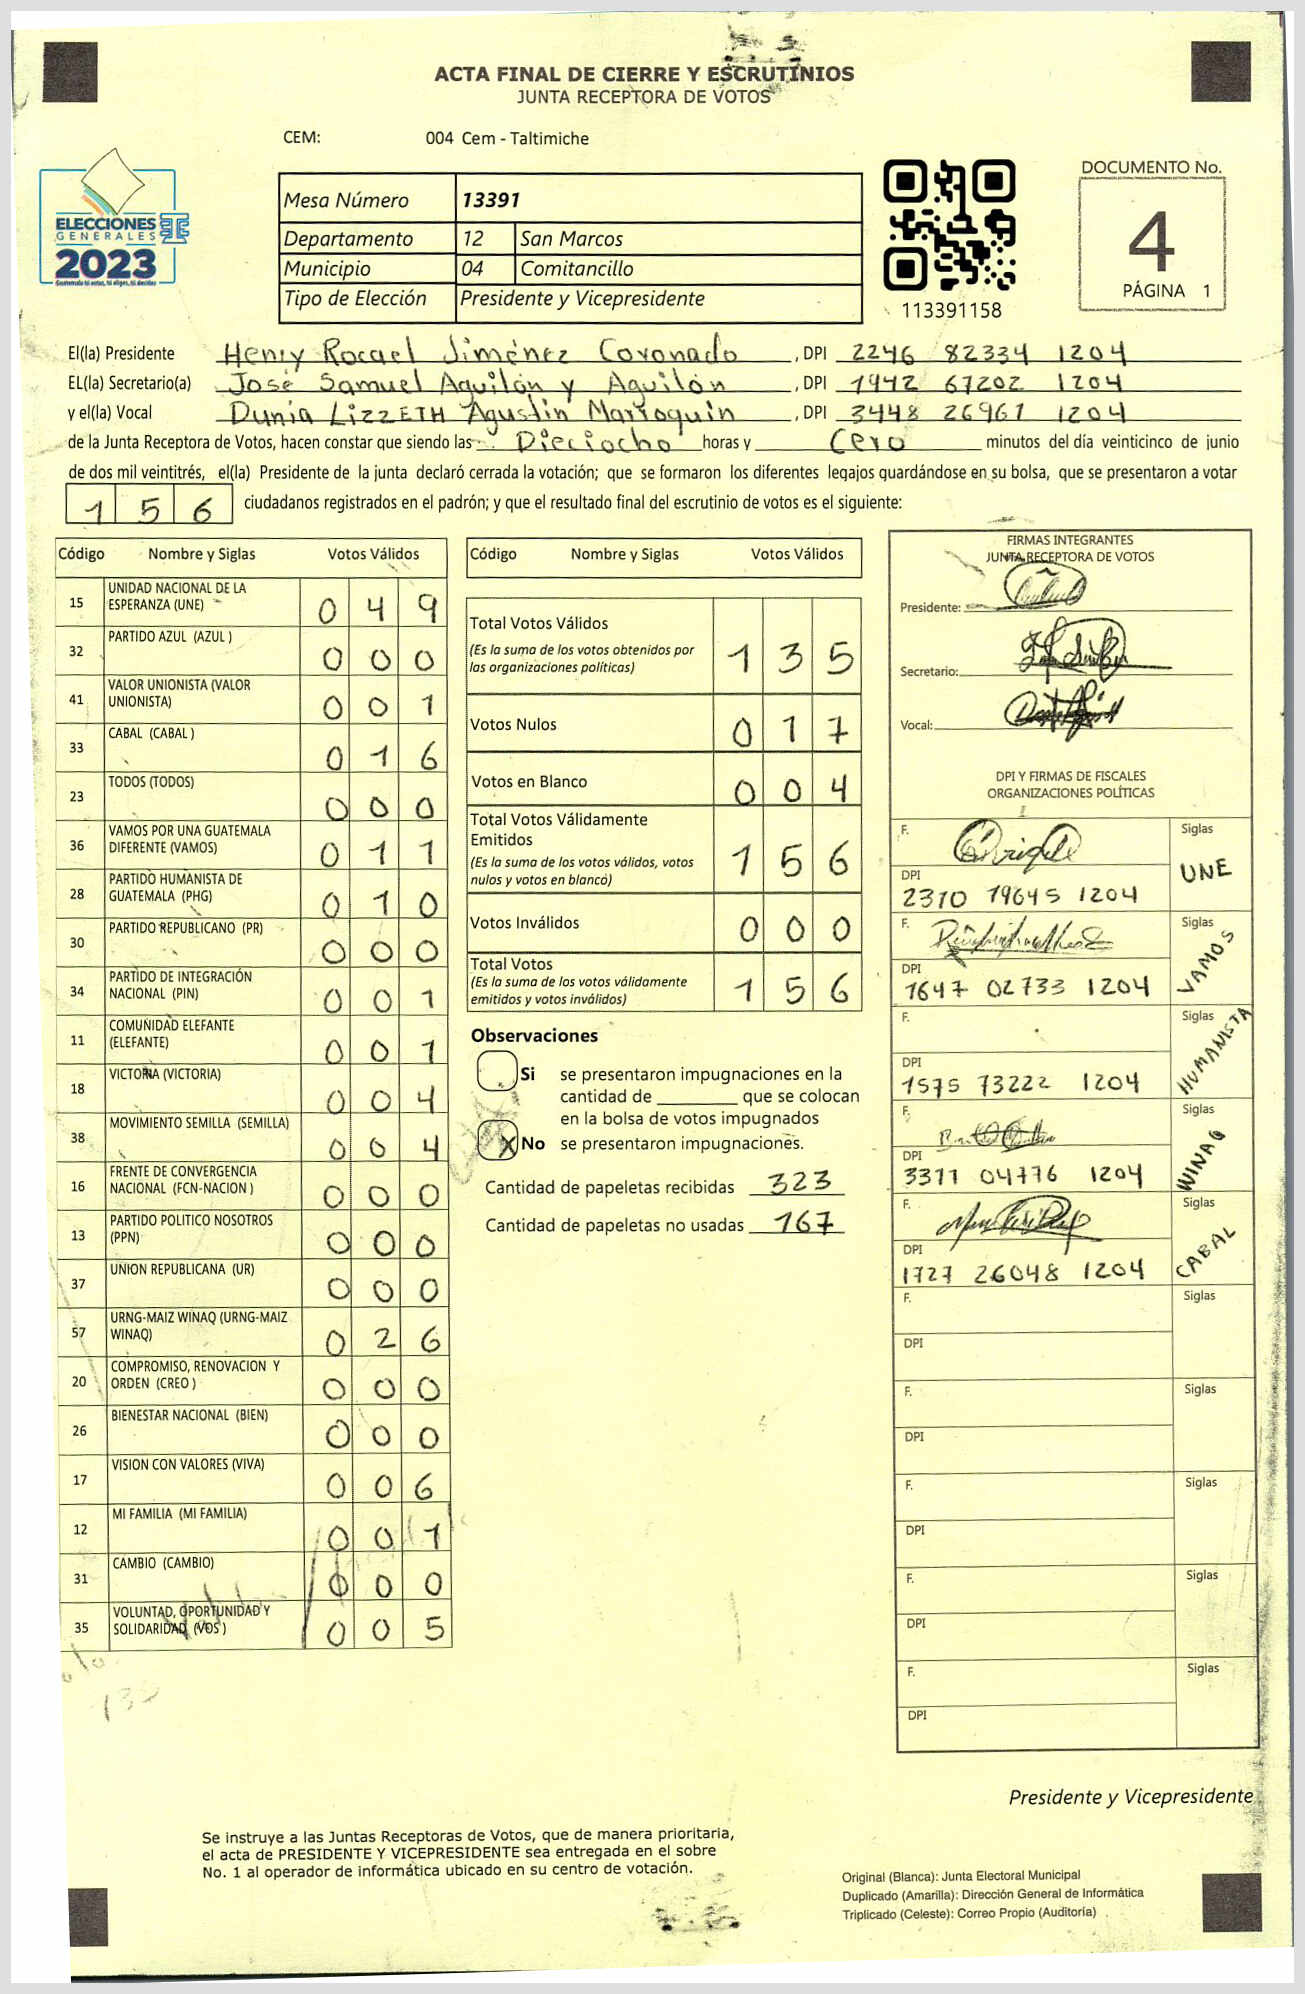 ACTA FINAL DE CIERRE Y ESCRUTINIOS
JUNTA RECEPTORA DE VOTOS
CEM: 004 Cem - Taltimiche
ELECCIONES
GENERALES
2023
Guatemala tú votas, tú eliges, tú decides
Mesa Número 13391
Departamento 12 San Marcos
Municipio 04 Comitancillo
Tipo de Elección Presidente y Vicepresidente
113391158
DOCUMENTO No.
4
PÁGINA 1
El(la) Presidente Henry Rocael Jiménez Coronado , DPI 2246 82334 1204
EL(la) Secretario(a) José Samuel Aguilón y Aguilón , DPI 1942 67202 1204
y el(la) Vocal Dunia Lizzeth Agustin Marroquín , DPI 3448 26961 1204
de la Junta Receptora de Votos, hacen constar que siendo las Dieciocho horas y Cero minutos del día veinticinco de junio
de dos mil veintitrés, el(la) Presidente de la junta declaró cerrada la votación; que se formaron los diferentes legajos quardándose en su bolsa, que se presentaron a votar
156 ciudadanos registrados en el padrón; y que el resultado final del escrutinio de votos es el siguiente:
Código Nombre y Siglas Votos Válidos
15 UNIDAD NACIONAL DE LA ESPERANZA (UNE) 0 4 9
32 PARTIDO AZUL (AZUL ) 0 0 0
41 VALOR UNIONISTA (VALOR UNIONISTA) 0 0 1
33 CABAL (CABAL ) 0 1 6
23 TODOS (TODOS) 0 0 0
36 VAMOS POR UNA GUATEMALA DIFERENTE (VAMOS) 0 1 1
28 PARTIDO HUMANISTA DE GUATEMALA (PHG) 0 1 0
30 PARTIDO REPUBLICANO (PR) 0 0 0
34 PARTIDO DE INTEGRACIÓN NACIONAL (PIN) 0 0 1
11 COMUNIDAD ELEFANTE (ELEFANTE) 0 0 1
18 VICTORIA (VICTORIA) 0 0 4
38 MOVIMIENTO SEMILLA (SEMILLA) 0 0 4
16 FRENTE DE CONVERGENCIA NACIONAL (FCN-NACION ) 0 0 0
13 PARTIDO POLITICO NOSOTROS (PPN) 0 0 0
37 UNION REPUBLICANA (UR) 0 0 0
57 URNG-MAIZ WINAQ (URNG-MAIZ WINAQ) 0 2 6
20 COMPROMISO, RENOVACION Y ORDEN (CREO ) 0 0 0
26 BIENESTAR NACIONAL (BIEN) 0 0 0
17 VISION CON VALORES (VIVA) 0 0 6
12 MI FAMILIA (MI FAMILIA) 0 0 1
31 CAMBIO (CAMBIO) 0 0 0
35 VOLUNTAD, OPORTUNIDAD Y SOLIDARIDAD (VOS ) 0 0 5
Código Nombre y Siglas Votos Válidos
Total Votos Válidos 1 3 5
(Es la suma de los votos obtenidos por
las organizaciones políticas)
Votos Nulos 0 1 7
Votos en Blanco 0 0 4
Total Votos Válidamente
Emitidos 1 5 6
(Es la suma de los votos válidos, votos
nulos y votos en blanco)
Votos Inválidos 0 0 0
Total Votos 1 5 6
(Es la suma de los votos válidamente
emitidos y votos inválidos)
Observaciones
Si se presentaron impugnaciones en la
cantidad de ________ que se colocan
en la bolsa de votos impugnados
X No se presentaron impugnaciones.
Cantidad de papeletas recibidas 323
Cantidad de papeletas no usadas 167
FIRMAS INTEGRANTES
JUNTA RECEPTORA DE VOTOS
Presidente:
Secretario:
Vocal:
DPI Y FIRMAS DE FISCALES
ORGANIZACIONES POLÍTICAS
F. Siglas
UNE
DPI
2310 19645 1204
F. Siglas
VAMOS
DPI
1647 02733 1204
F. Siglas
HUMANISTA
DPI
1575 73222 1204
F. Siglas
WINAQ
DPI
3311 04776 1204
F. Siglas
CABAL
DPI
1727 26048 1204
F. Siglas
DPI
F. Siglas
DPI
F. Siglas
DPI
F. Siglas
DPI
F. Siglas
DPI
Presidente y Vicepresidente
Se instruye a las Juntas Receptoras de Votos, que de manera prioritaria,
el acta de PRESIDENTE Y VICEPRESIDENTE sea entregada en el sobre
No. 1 al operador de informática ubicado en su centro de votación.
Original (Blanca): Junta Electoral Municipal
Duplicado (Amarilla): Dirección General de Informática
Triplicado (Celeste): Correo Propio (Auditoría)